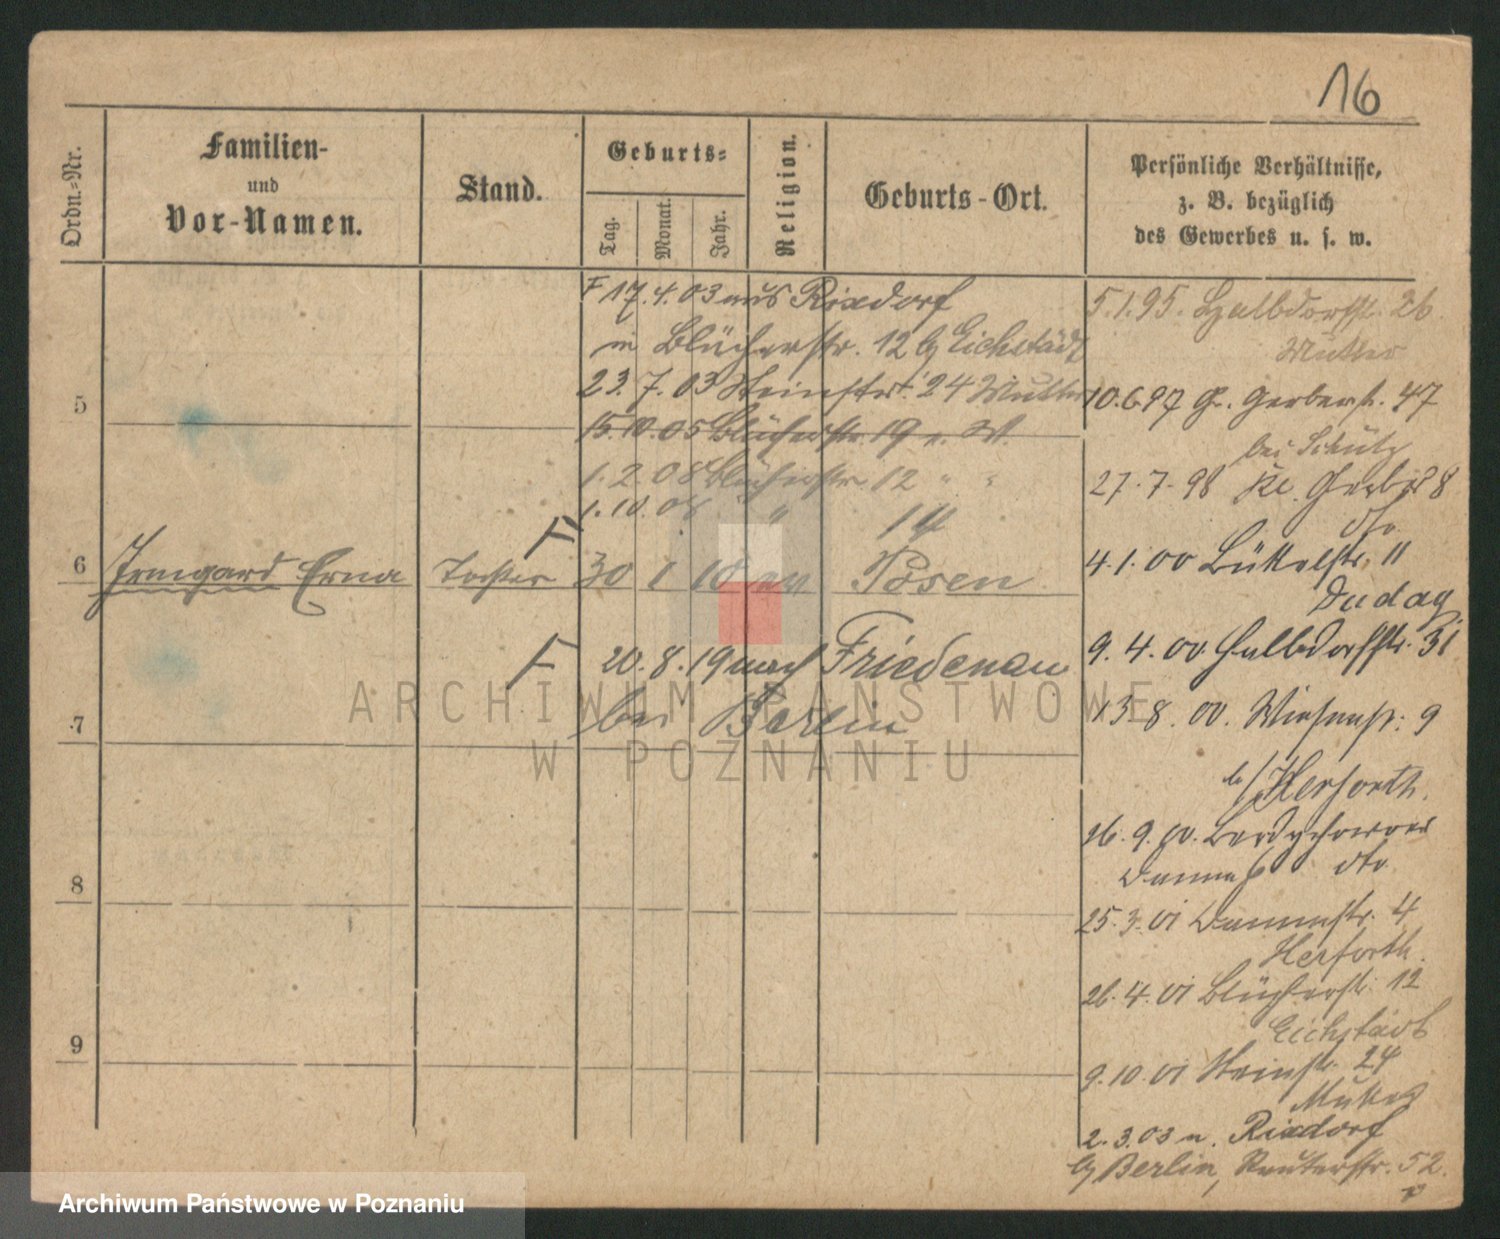 16
Ordn.-Nr.
Familien-
und
Vor-Namen.
Stand.
Geburts-
Tag.
Monat.
Jahr.
Religion.
Geburts-Ort.
Persönliche Verhältnisse,
z. B. bezüglich
des Gewerbes u. s. w.
F 17.4.03 aus Rixdorf
in Blücherstr. 12 b/ Eichstädt
23.7.03 Steinstr. 24 Mutter
15.10.05 Blücherstr. 19
1.2.08 Blücherstr. 12 " "
1.10.08 " 14
5
F
6 Irmgard Erna Tochter 30 1 10 ev Posen
F 20.8.19 nach Friedenau
bei Berlin
7
8
9
5.1.95. Halbdorfstr. 26
Mutter
10.6.97 Gr. Gerberstr. 47
bei Schütz
27.7.98 Kl. Gerbstr 8
dto
4.1.00 Büttelstr. 11
9.4.00. Halbdorfstr. 31
13.8.00. Wiesenstr. 9
b/ Herforth.
26.9.00. Berdychowoer
Dammstr dto
25.3.01 Dammstr. 4
Herforth.
26.4.01 Blücherstr. 12
Eichstädt
9.10.01 Steinstr. 24
Mutter
2.3.03 n. Rixdorf
b/ Berlin, Reuterstr. 52.
ARCHIWUM PAŃSTWOWE
W POZNANIU
Archiwum Państwowe w Poznaniu